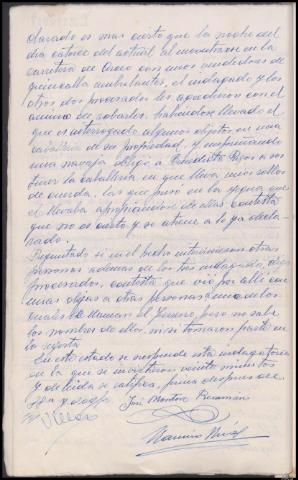 clarado es mas cierto que la noche del
día catorce del actual al encontrarse en la
carretera de Orozco con unos vendedores de
quincalla ambulantes, el indagado y los
otros dos procesados les agredieron con el
animo de robarles, habiendose llevado el
que es interrogado algunos objetos en una
caballeria de su propiedad, y esgrimiendo
una navaja obligó a Benedicto Rojo a sos
tener la caballeria en que llevar unos rollos
de cuerda, las que puso en la yegua que
el llevaba apropiandose de ellas contesta
que no es cierto y se atiene a lo ya decla-
rado.
Preguntado si en el hecho intervinieron otras
personas ademas de los tres indagados,
procesados, contesta que vió por alli con
unas a otras personas, uno de los
cuales le llaman el Herrero, pero no sabe
los nombres de ellos, ni si tomaron parte en
la reyerta
En este estado se suspende esta indagatoria
en la que se invirtieron veinte minutos
y leida se ratifica, firma despues de
José Montero